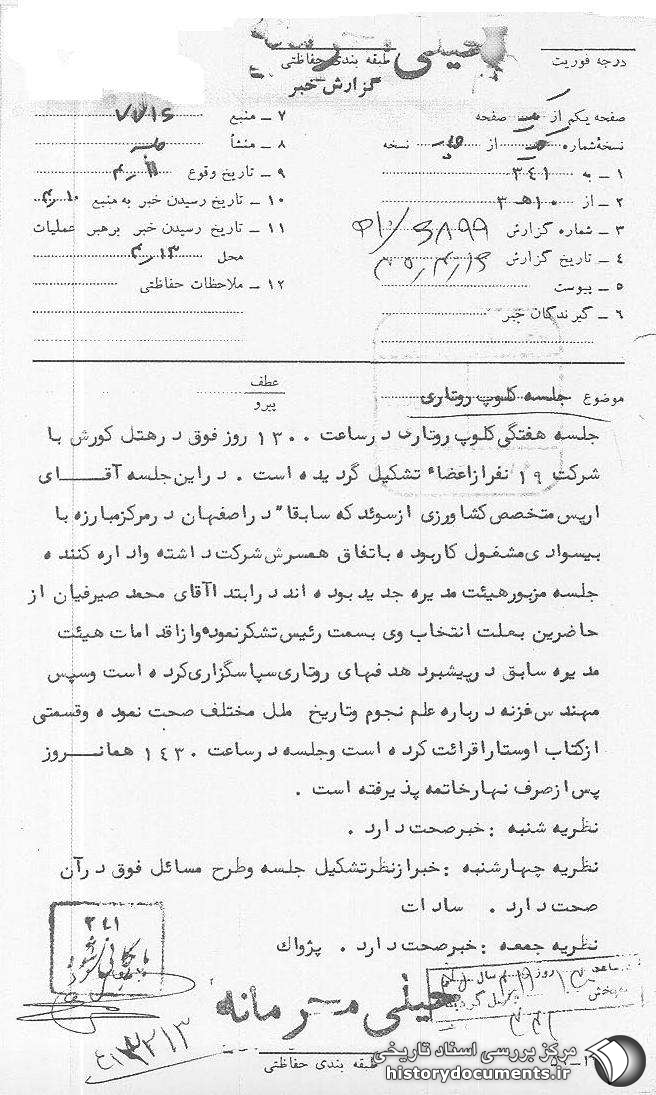 خیلی محرمانه
درجه فوریت
طبقه بندی حفاظتی
گزارش خبر
صفحه یکم از صفحه
نسخهٔ شماره از نسخه
۱ ـ به ۳٤۱
۲ ـ از ۱۰ هـ ۳
۳ ـ شماره گزارش
٤ ـ تاریخ گزارش
۵ ـ پیوست
۶ ـ گیرندگان خبر
۷ ـ منبع
۸ ـ منشأ
۹ ـ تاریخ وقوع
۱۰ ـ تاریخ رسیدن خبر به منبع
۱۱ ـ تاریخ رسیدن خبر برهبر عملیات
محل
۱۲ ـ ملاحظات حفاظتی
موضوع جلسه کلوپ روتاری
عطف
پیرو
جلسه هفتگی کلوپ روتاری درساعت ۱۳۰۰ روز فوق درهتل کورش با
شرکت ۱۹ نفرازاعضاء تشکیل گردیده است . دراین جلسه آقـــای
اریس متخصص کشاورزی ازسوئد که سابقا" دراصفهان درمرکزمبارزه با
بیسوادی مشغول کاربوده باتفاق همسرش شرکت داشته واداره کننده
جلسه مزبورهیئت مدیره جدید بوده اند درابتدا آقای محمد صیرفیان از
حاضرین بعلت انتخاب وی بسمت رئیس تشکرنموده وازاقدامات هیئت
مدیره سابق درپیشبرد هدفهای روتاری سپاسگزاری کرده است وسپس
مهندس غزنه درباره علم نجوم وتاریخ ملل مختلف صحت نموده وقسمتی
ازکتاب اوستاراقرائت کرده است وجلسه درساعت ۱٤۳۰ همانـــروز
پس ازصرف نهارخاتمه پذیرفته است .
نظریه شنبه : خبرصحت دارد .
نظریه چهارشنبه : خبرازنظرتشکیل جلسه وطرح مسائل فوق درآن
صحت دارد . سادات
نظریه جمعه : خبرصحت دارد . پژواك
۳٤۱
بایگانی شود
خیلی محرمانه
طبقه بندی حفاظتی
مرکز بررسی اسناد تاریخی
historydocuments.ir